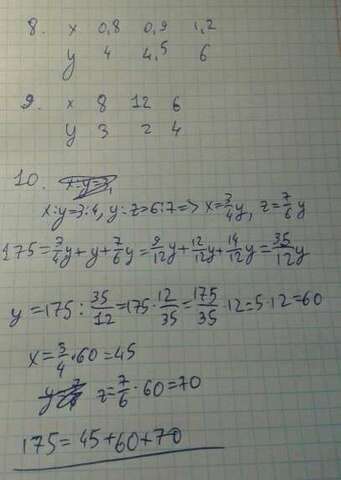 8. x 0,8 0,9 1,2
y 4 4,5 6
9. x 8 12 6
y 3 2 4
10.
x:y=3:4, y:z=6:7=> x=3/4y, z=7/6y
175=3/4y+y+7/6y=9/12y+12/12y+14/12y=35/12y
y=175:35/12=175·12/35=175/35·12=5·12=60
x=3/4·60=45
z=7/6·60=70
175=45+60+70